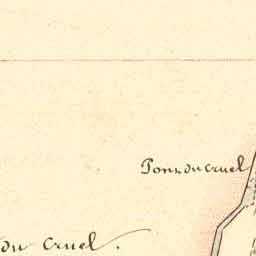 Pont du Cruel
du Cruel.